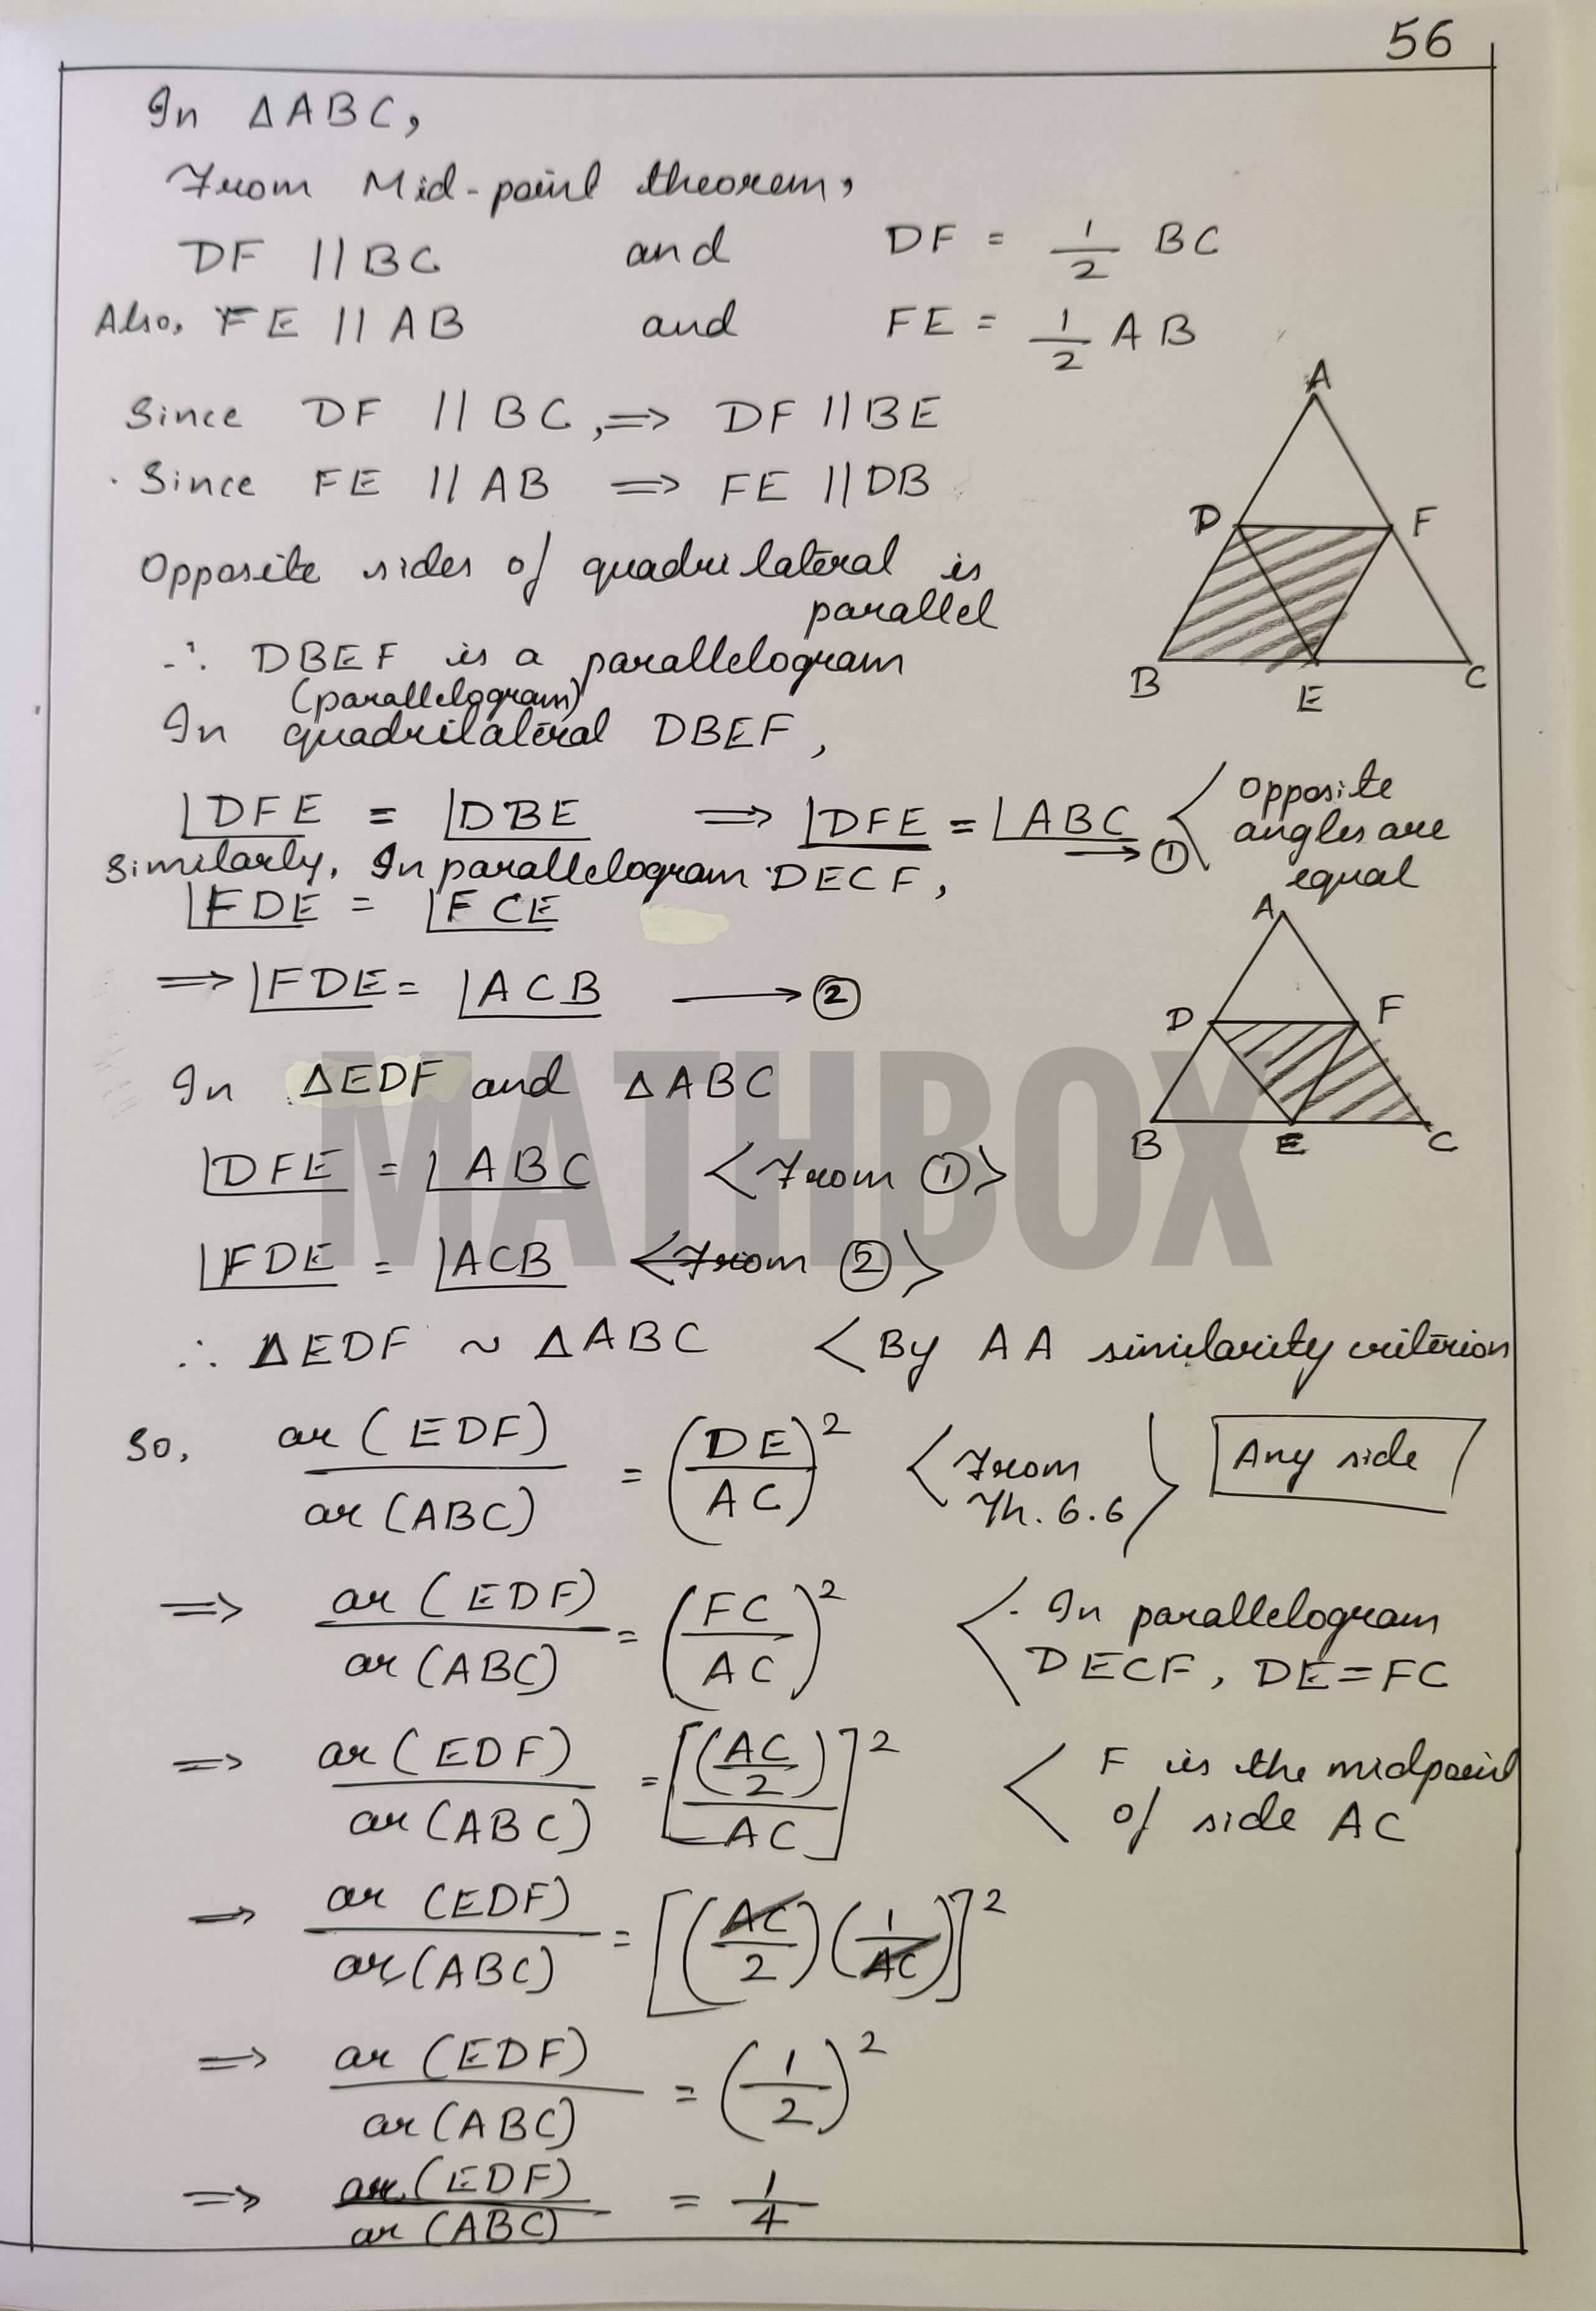 56
In ΔABC,
From Mid-point theorem,
DF || BC and DF = 1/2 BC
Also, FE || AB and FE = 1/2 AB
Since DF || BC, => DF || BE
Since FE || AB => FE || DB
Opposite sides of quadrilateral is
parallel
∴ DBEF is a parallelogram
(parallelogram)
In quadrilateral DBEF,
∠DFE = ∠DBE => ∠DFE = ∠ABC → ① < Opposite
angles are
equal
Similarly, In parallelogram DECF,
∠FDE = ∠FCE
=> ∠FDE = ∠ACB → ②
In ΔEDF and ΔABC
∠DFE = ∠ABC <From ①>
∠FDE = ∠ACB <From ②>
∴ ΔEDF ~ ΔABC < By AA similarity criterion
So, ar(EDF)/ar(ABC) = (DE/AC)² <From Th. 6.6> Any side
=> ar(EDF)/ar(ABC) = (FC/AC)² < In parallelogram
DECF, DE = FC
=> ar(EDF)/ar(ABC) = [(AC/2)/AC]² < F is the midpoint
of side AC
=> ar(EDF)/ar(ABC) = [(AC/2)(1/AC)]²
=> ar(EDF)/ar(ABC) = (1/2)²
=> ar(EDF)/ar(ABC) = 1/4
A
D F
B E C
A
D F
B E C
MATHBOX